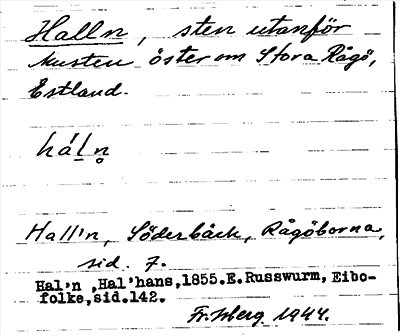 Halln, sten utanför
kusten öster om Stora Rågö,
Estland.
hál̲n̥
Hall'n, Söderbäck, Rågöborna,
sid. 7.
Hal'n ,Hal'hans,1855.E.Russwurm, Eibo-
folke,sid.142.
1944.